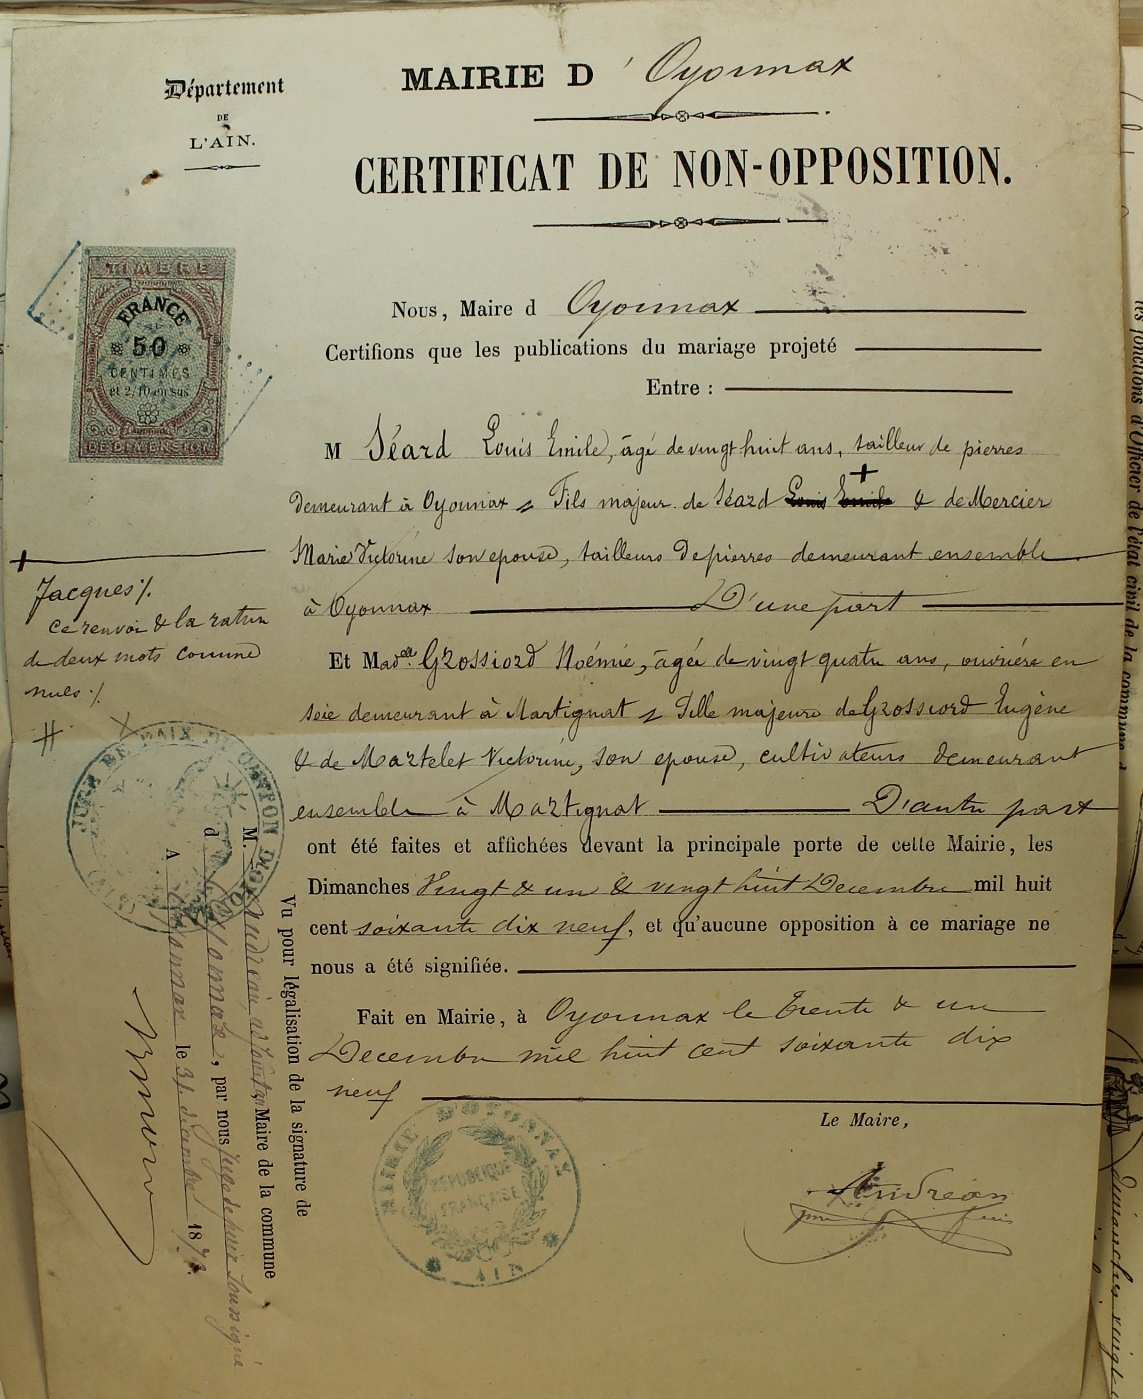 Département
DE
L'AIN.
MAIRIE D'Oyonnax
CERTIFICAT DE NON-OPPOSITION.
TIMBRE
FRANCE
50
CENTIMES
et 2/10 en sus
DE DIMENSION
Nous, Maire d Oyonnax
Certifions que les publications du mariage projeté
Entre :
M Séard Louis Emile, âgé de vingt huit ans, tailleur de pierres
demeurant à Oyonnax = Fils majeur de Séard Louis Emile + & de Mercier
Marie Victorine son epouse, tailleurs de pierres demeurant ensemble
à Oyonnax D'une part
Et Mad.elle Grossiord Noémie, âgée de vingt quatre ans, ouvrière en
soie demeurant à Martignat = Fille majeure de Grossiord Eugène
& de Martelet Victorine, son epouse, cultivateurs demeurant
ensemble à Martignat D'autre part
ont été faites et affichées devant la principale porte de cette Mairie, les
Dimanches Vingt & un & vingt huit Decembre mil huit
cent soixante dix neuf, et qu'aucune opposition à ce mariage ne
nous a été signifiée.
Fait en Mairie, à Oyonnax le trente & un
Decembre mil huit cent soixante dix
neuf
Le Maire,
Andréan
MAIRIE D'OYONNAX
RÉPUBLIQUE
FRANÇAISE
AIN
+
Jacques ./.
ce renvoi & la rature
de deux mots comme
nuls ./.
#
JUGE DE PAIX DU CANTON D'OYONNAX
(AIN)
Vu pour légalisation de la signature de
M. Andréan, adjoint au Maire de la commune
d'Oyonnax, par nous Juge de paix soussigné
A Oyonnax le 31 décembre 1879.
les fonctions d'Officier de l'état civil de la commune d
dimanches vingt